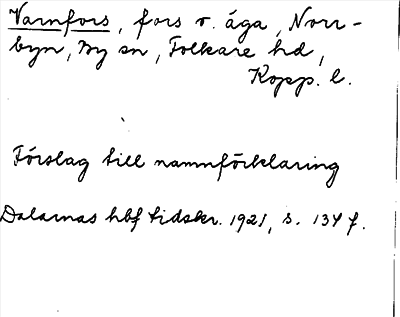 Varnfors, fors o. äga, Norr-
byn, By sn, Folkare hd,
Kopp. l.
Förslag till namnförklaring
Dalarnas hbf tidskr. 1921, s. 134 f.